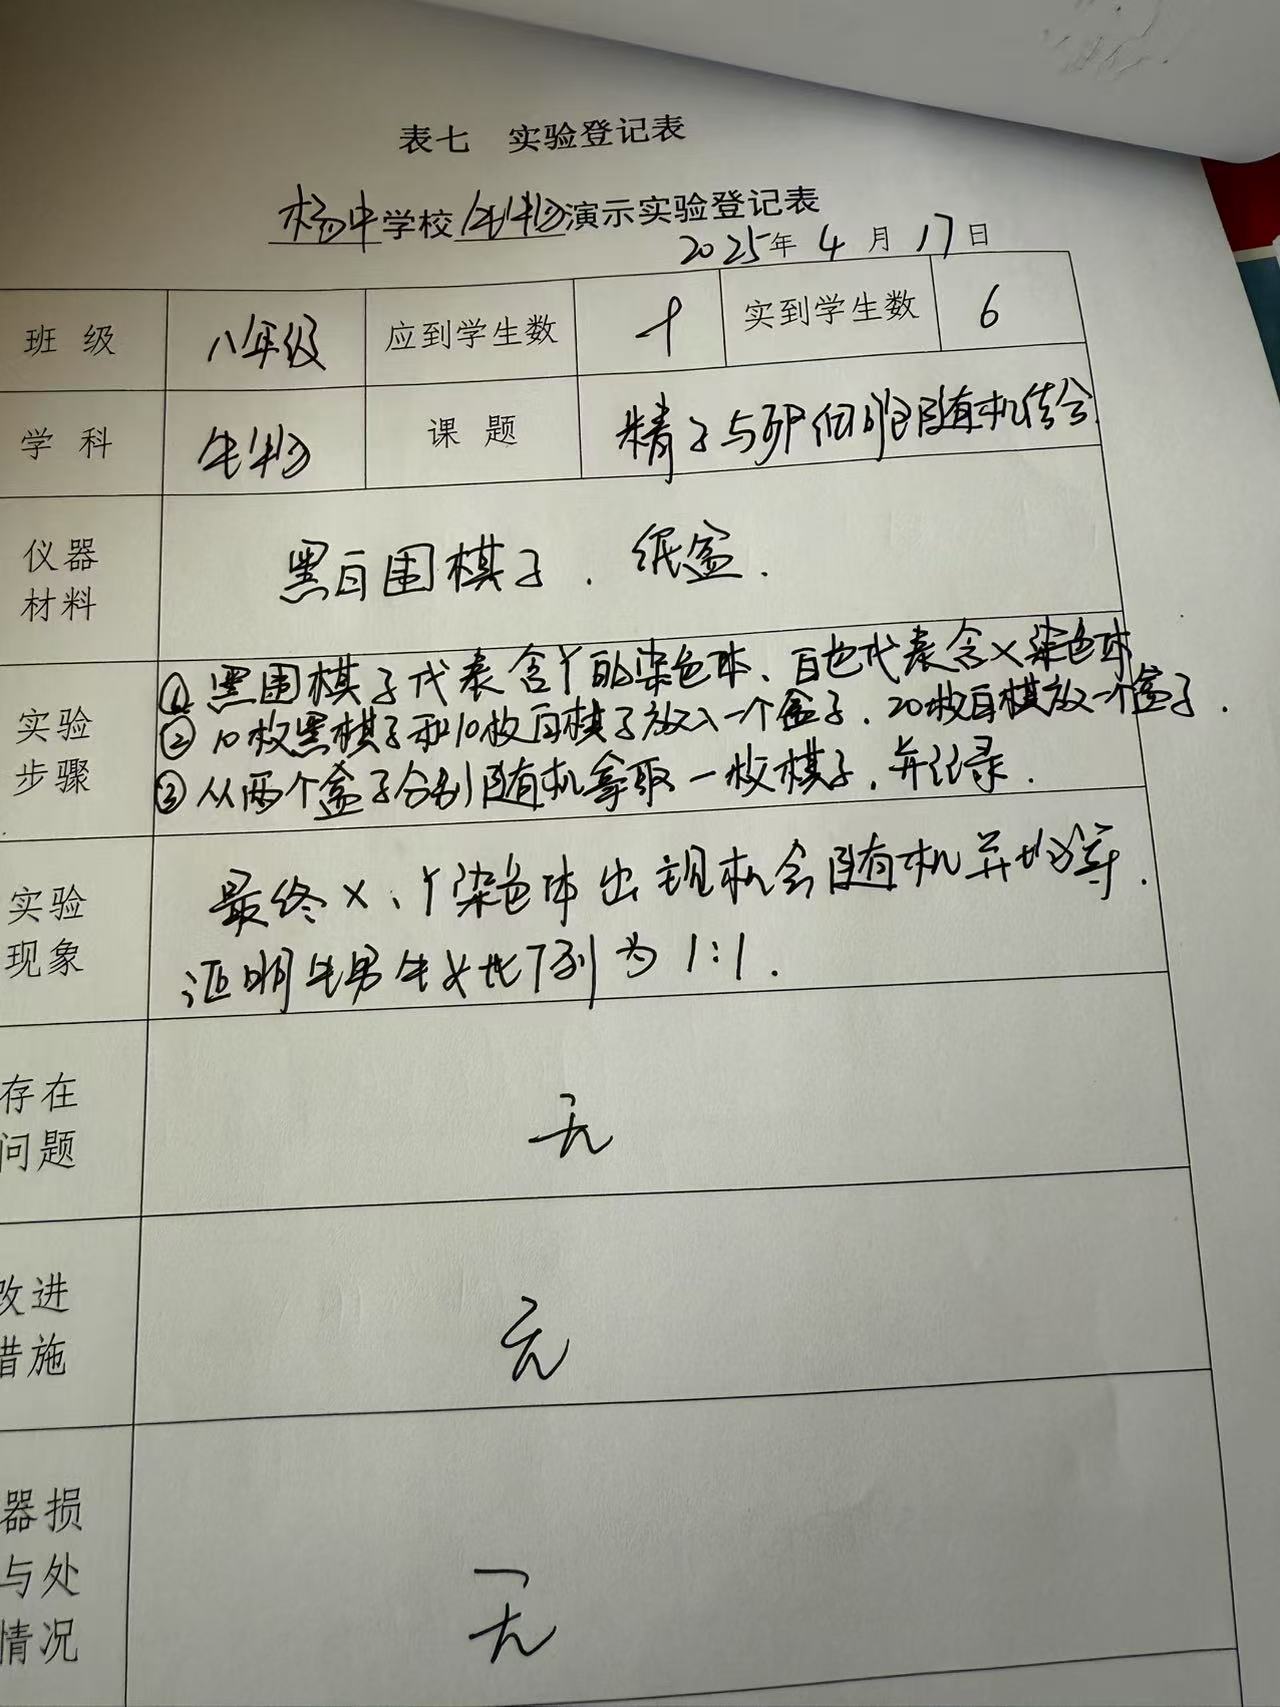 表七 实验登记表
杨中学校生物演示实验登记表
2025年4月17日
班级 八年级 应到学生数 十 实到学生数 6
学科 生物 课题 精子与卵细胞随机结合.
仪器材料 黑白围棋子. 纸盒.
实验步骤
① 黑围棋子代表含Y的染色体、白色代表含X染色体
② 10枚黑棋子和10枚白棋子放入一个盒子. 20枚白棋放一个盒子.
③ 从两个盒子分别随机拿取一枚棋子, 并记录.
实验现象
最终X、Y染色体出现机会随机并均等.
证明生男生女比例为1:1.
存在问题 无
改进
措施 无
器损
与处
情况 无